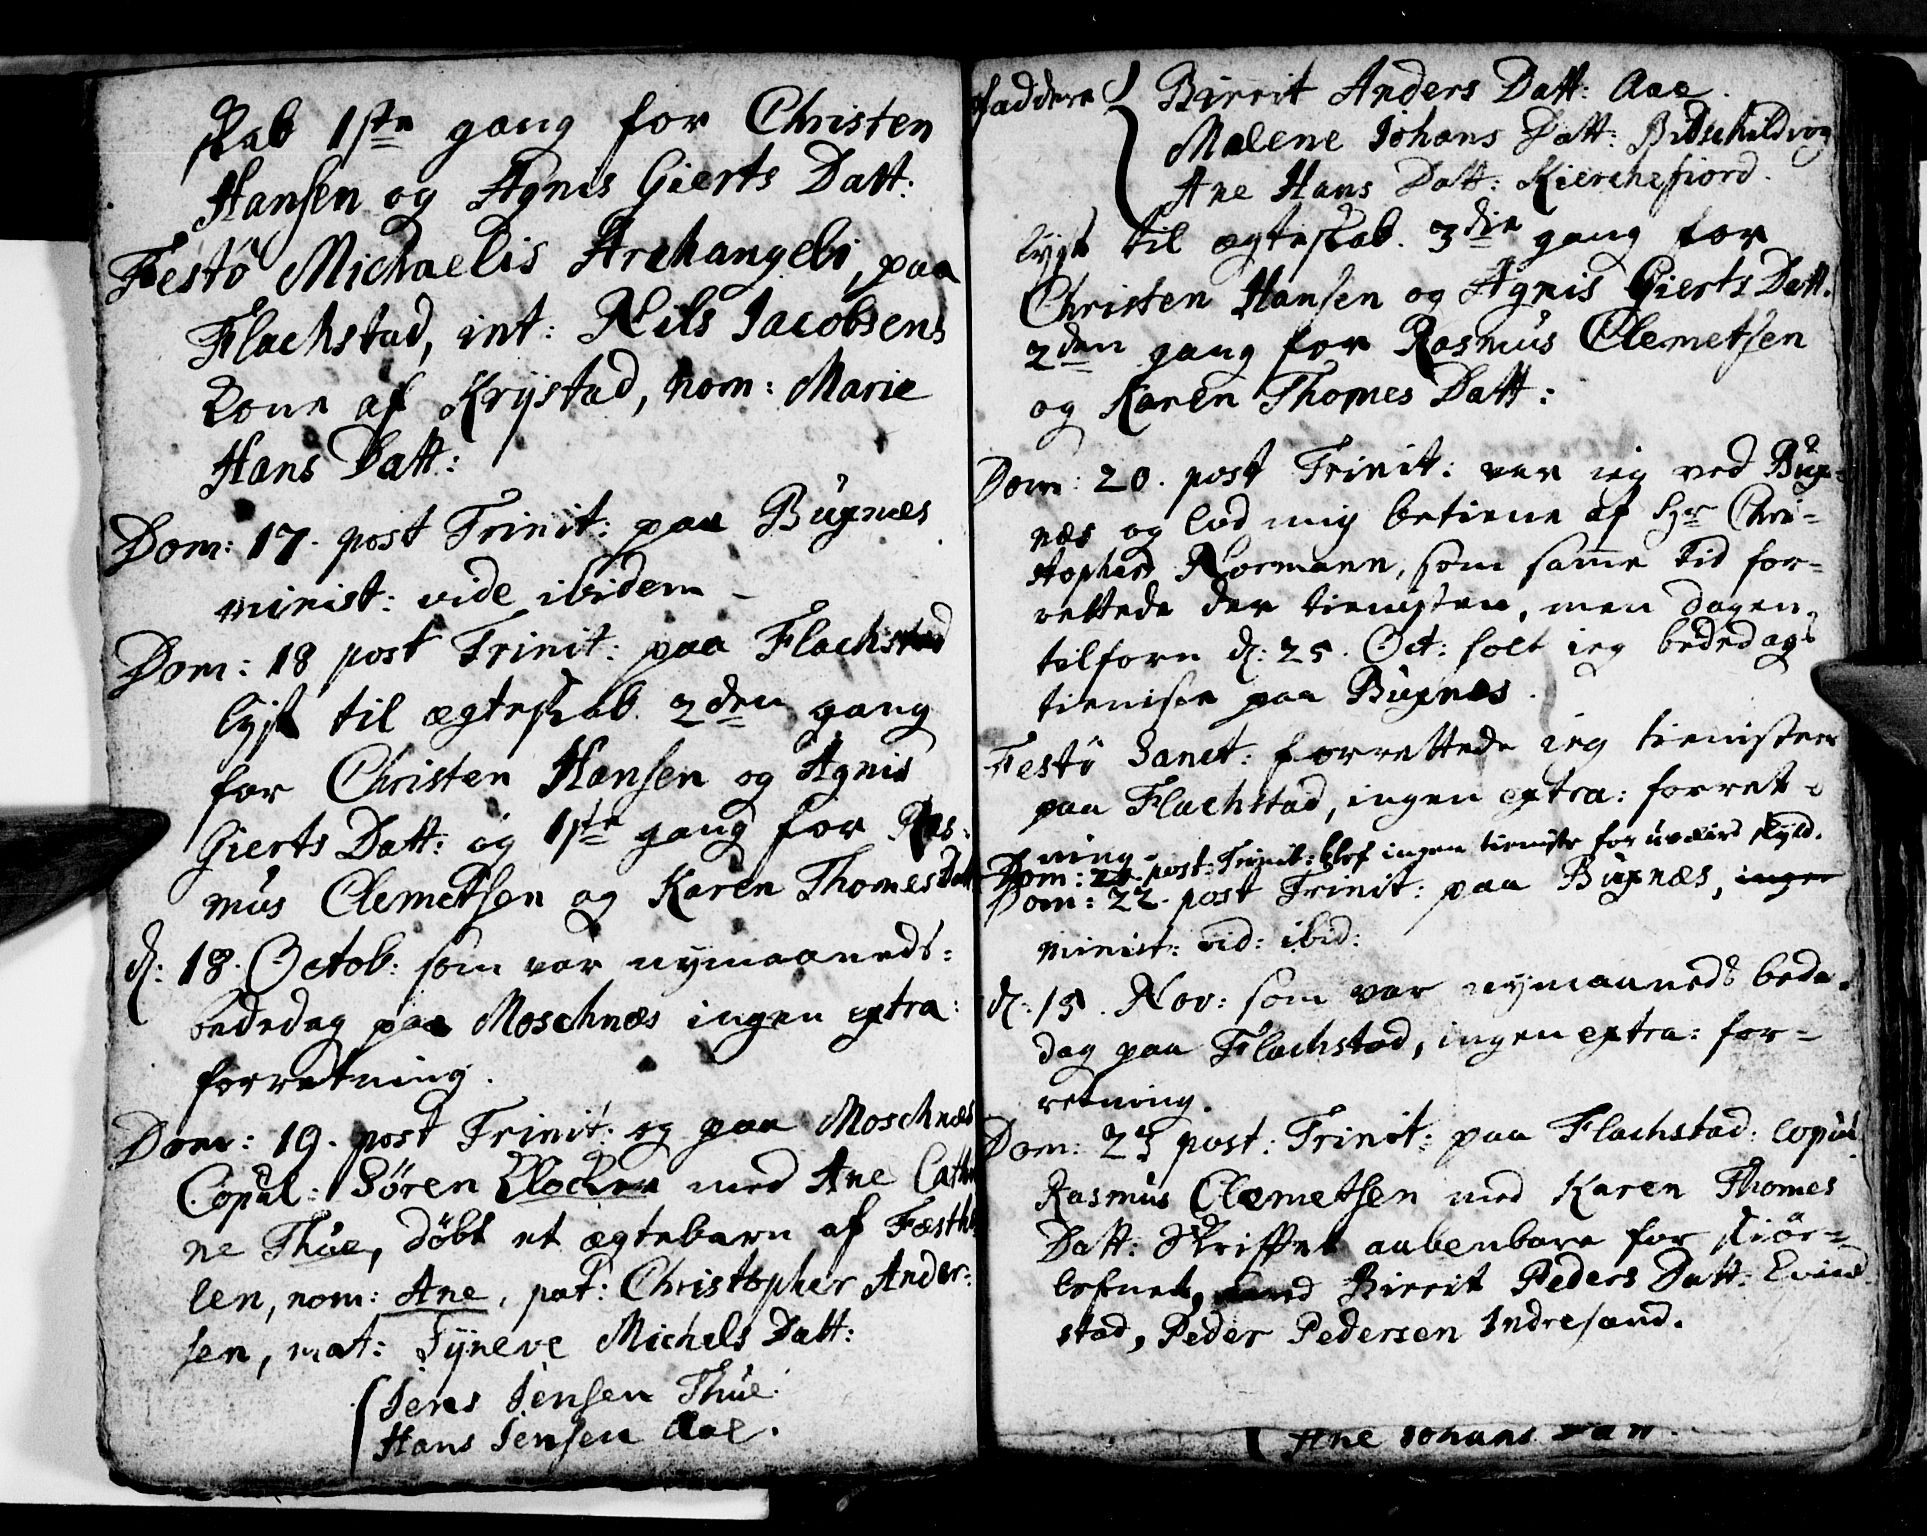 skab 1ste gang for Christen
Hansen og Agnis Gierts Datt:
Festô Michaelis Archangeli, paa
Flachstad, int: Nils Jacobsens
Kone af Krystad, nom: Marie
Hans Datt:
Dom: 17. post Trinit: paa Buxnæs
minist: vide ibidem
Dom: 18 post Trinit: paa Flachstad
lyst til ægteskab 2den gang
for Christen Hansen og Agnis
Gierts Datt: og 1ste gang for Ras-
mus Clemetsen og Karen Thomes Datt
d: 18. Octob: som var nymaaneds-
bededag paa Moschnæs ingen extra:
forretning.
Dom: 19. post Trinit: og paa Moschnæs
Copul: Sören Klocker med Ane Cathri
ne Thue, döbt et ægtebarn af Fæsthæ
len, nom: Ane, pat: Christopher Ander-
sen, mat: Syneve Michels Datt:
Jens Jensen Thue
Hans Jensen Aae.
faddere Birrit Anders Datt: Aae.
Malene Johans Datt: Budschildvog
Ane Hans Datt: Kierchefiord.
lyst til ægteskab 3die gang for
Christen Hansen og Agnis Gierts Datt.
2den gang for Rasmus Clemetsen
og Karen Thomes Datt:
Dom: 20. post Trinit: var ieg ved Bux-
næs og lod mig betiene af Hr Chri-
stopher Normann, som samme tid for-
rettede der tienisten, men dagen
tilforn d: 25. Oct: holt ieg bededags
tieniste paa Buxnæs.
Festô Sanct: forrettede ieg tienisten
paa Flachstad, ingen extra: forret-
ning.
Dom: 21. post: Trinit: blef ingen tieniste for uveirs skyld.
Dom: 22. post Trinit: paa Buxnæs, ingen
minist: vid: ibid:
d: 15. Nov: som var nymaaneds bede-
dag paa Flachstad, ingen extra: for-
retning.
Dom: 23 post: Trinit: paa Flachstad: copul
Rasmus Clemetsen med Karen Thomes
Datt: Skriftet aabenbare for skiör-
lefnet, Birrit Peders Datt: Evind
stad, Peder Pedersen Indresand.
Ane Johans Datt.